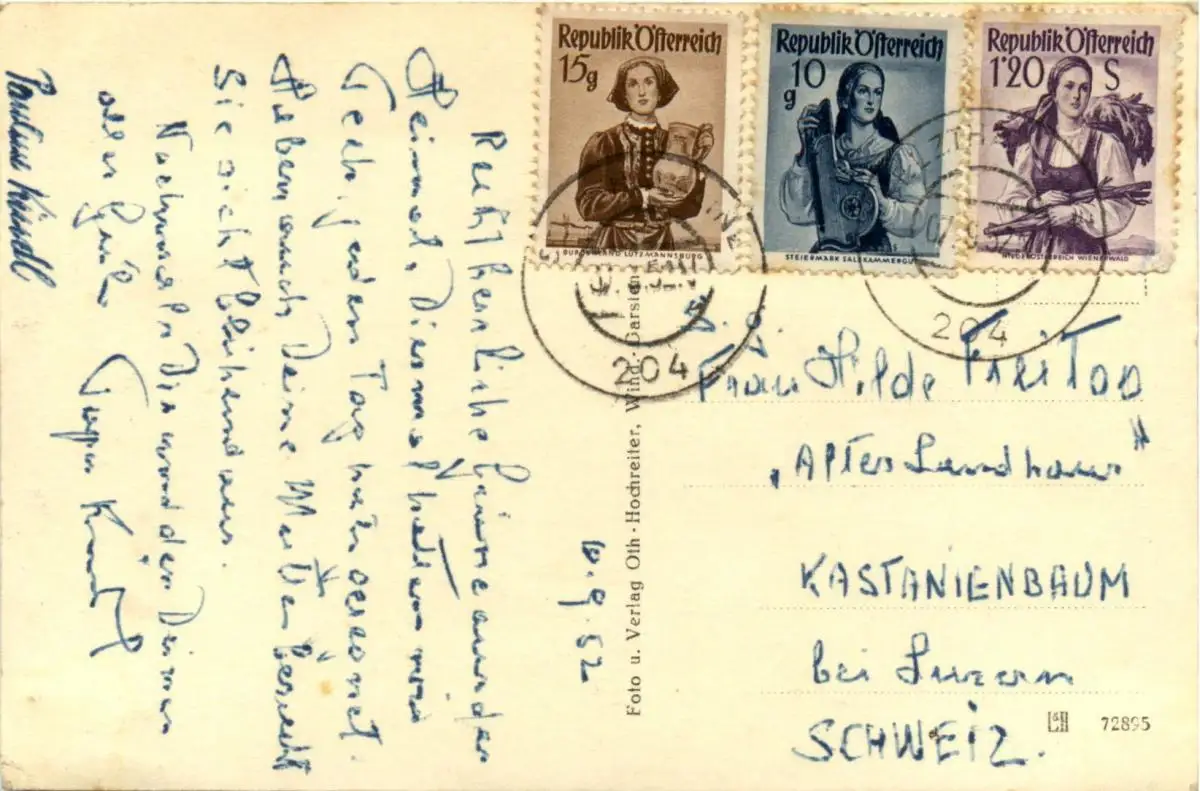 Republik Österreich
15g
BURGENLAND LUTZMANNSBURG
Republik Österreich
10
g
STEIERMARK SALZKAMMERGUT
Republik Österreich
1'20 S
NIEDERÖSTERREICH WIENERWALD
204
204
Recht herrliche Grüsse aus der
Heimat. Diesmal hatten wir
jeden Tag
Haben auch Deine Mutter besucht
Sie sieht blühend aus.
Nochmals Dir und den Deinen
alles Gute
Pauline Kindl
10.9.52
Foto u. Verlag Oth. Hochreiter, Wind.-Garsten
Frau Hilde FREITAG
"Altes Landhaus"
KASTANIENBAUM
bei Luzern
SCHWEIZ.
72895